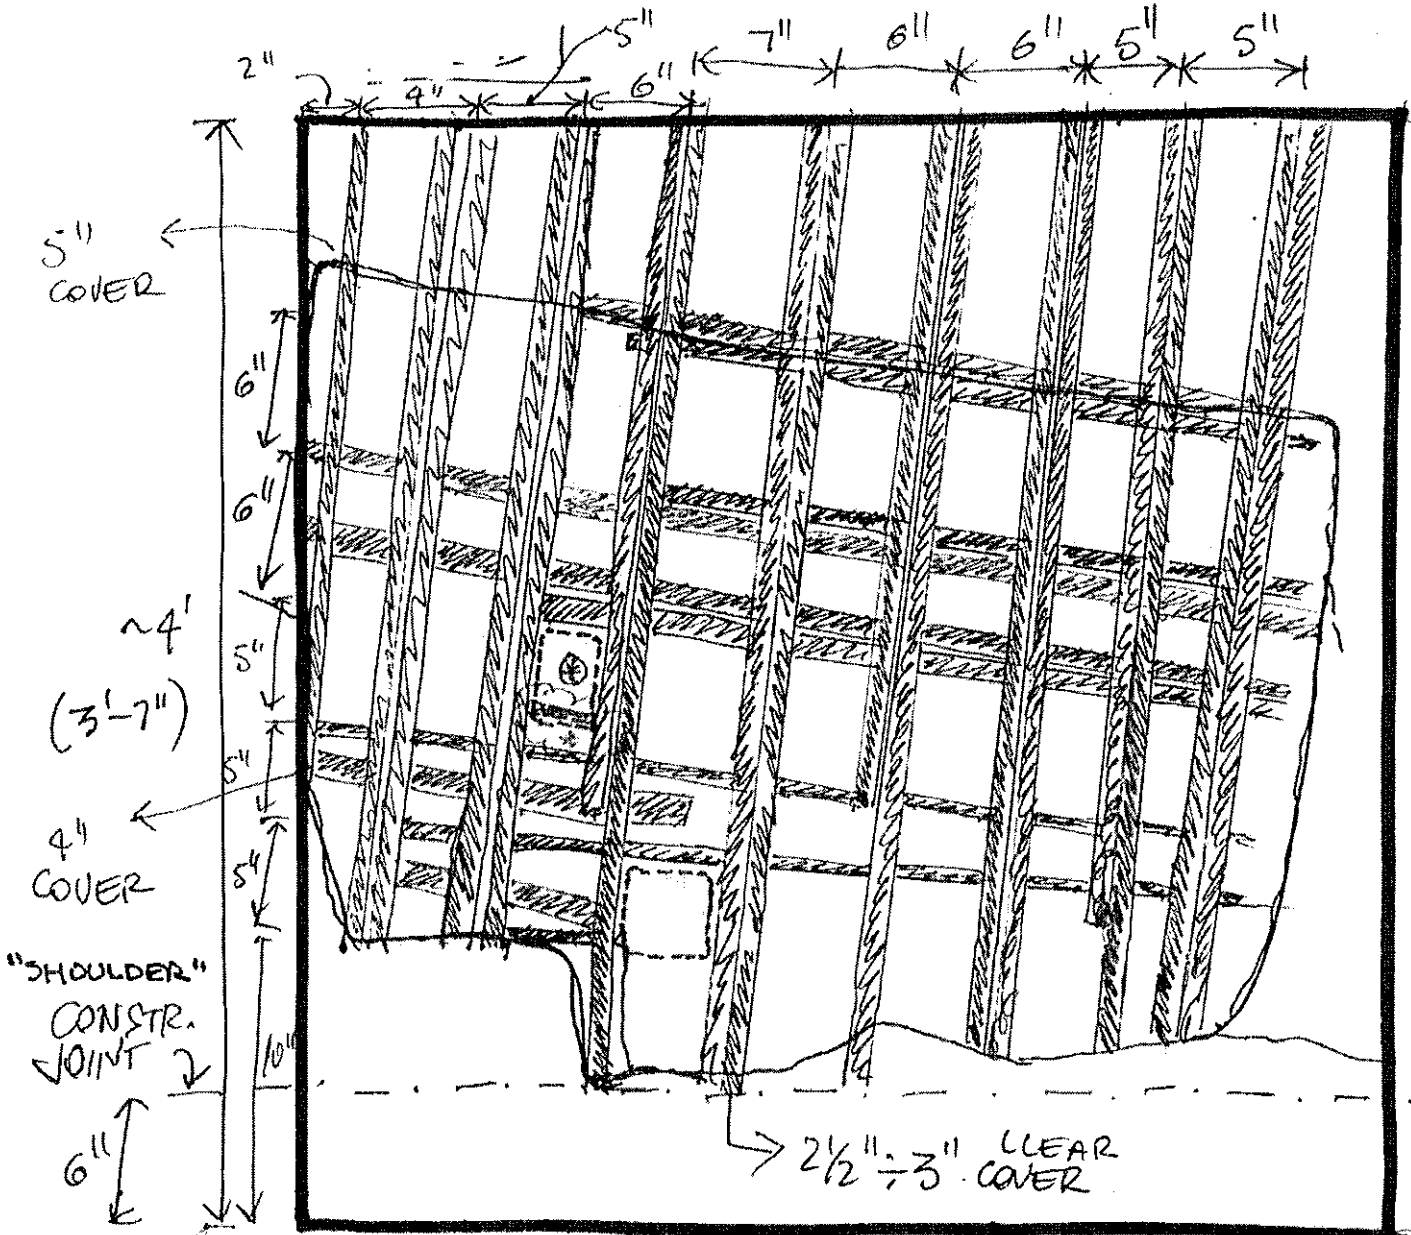 5"
7"
6"
6"
5"
5"
2"
4"
6"
5"
COVER
6"
6"
~4'
(3'-7")
5"
5"
4"
COVER
5"
"SHOULDER"
CONSTR.
JOINT
10"
6"
2½"÷3" CLEAR
COVER